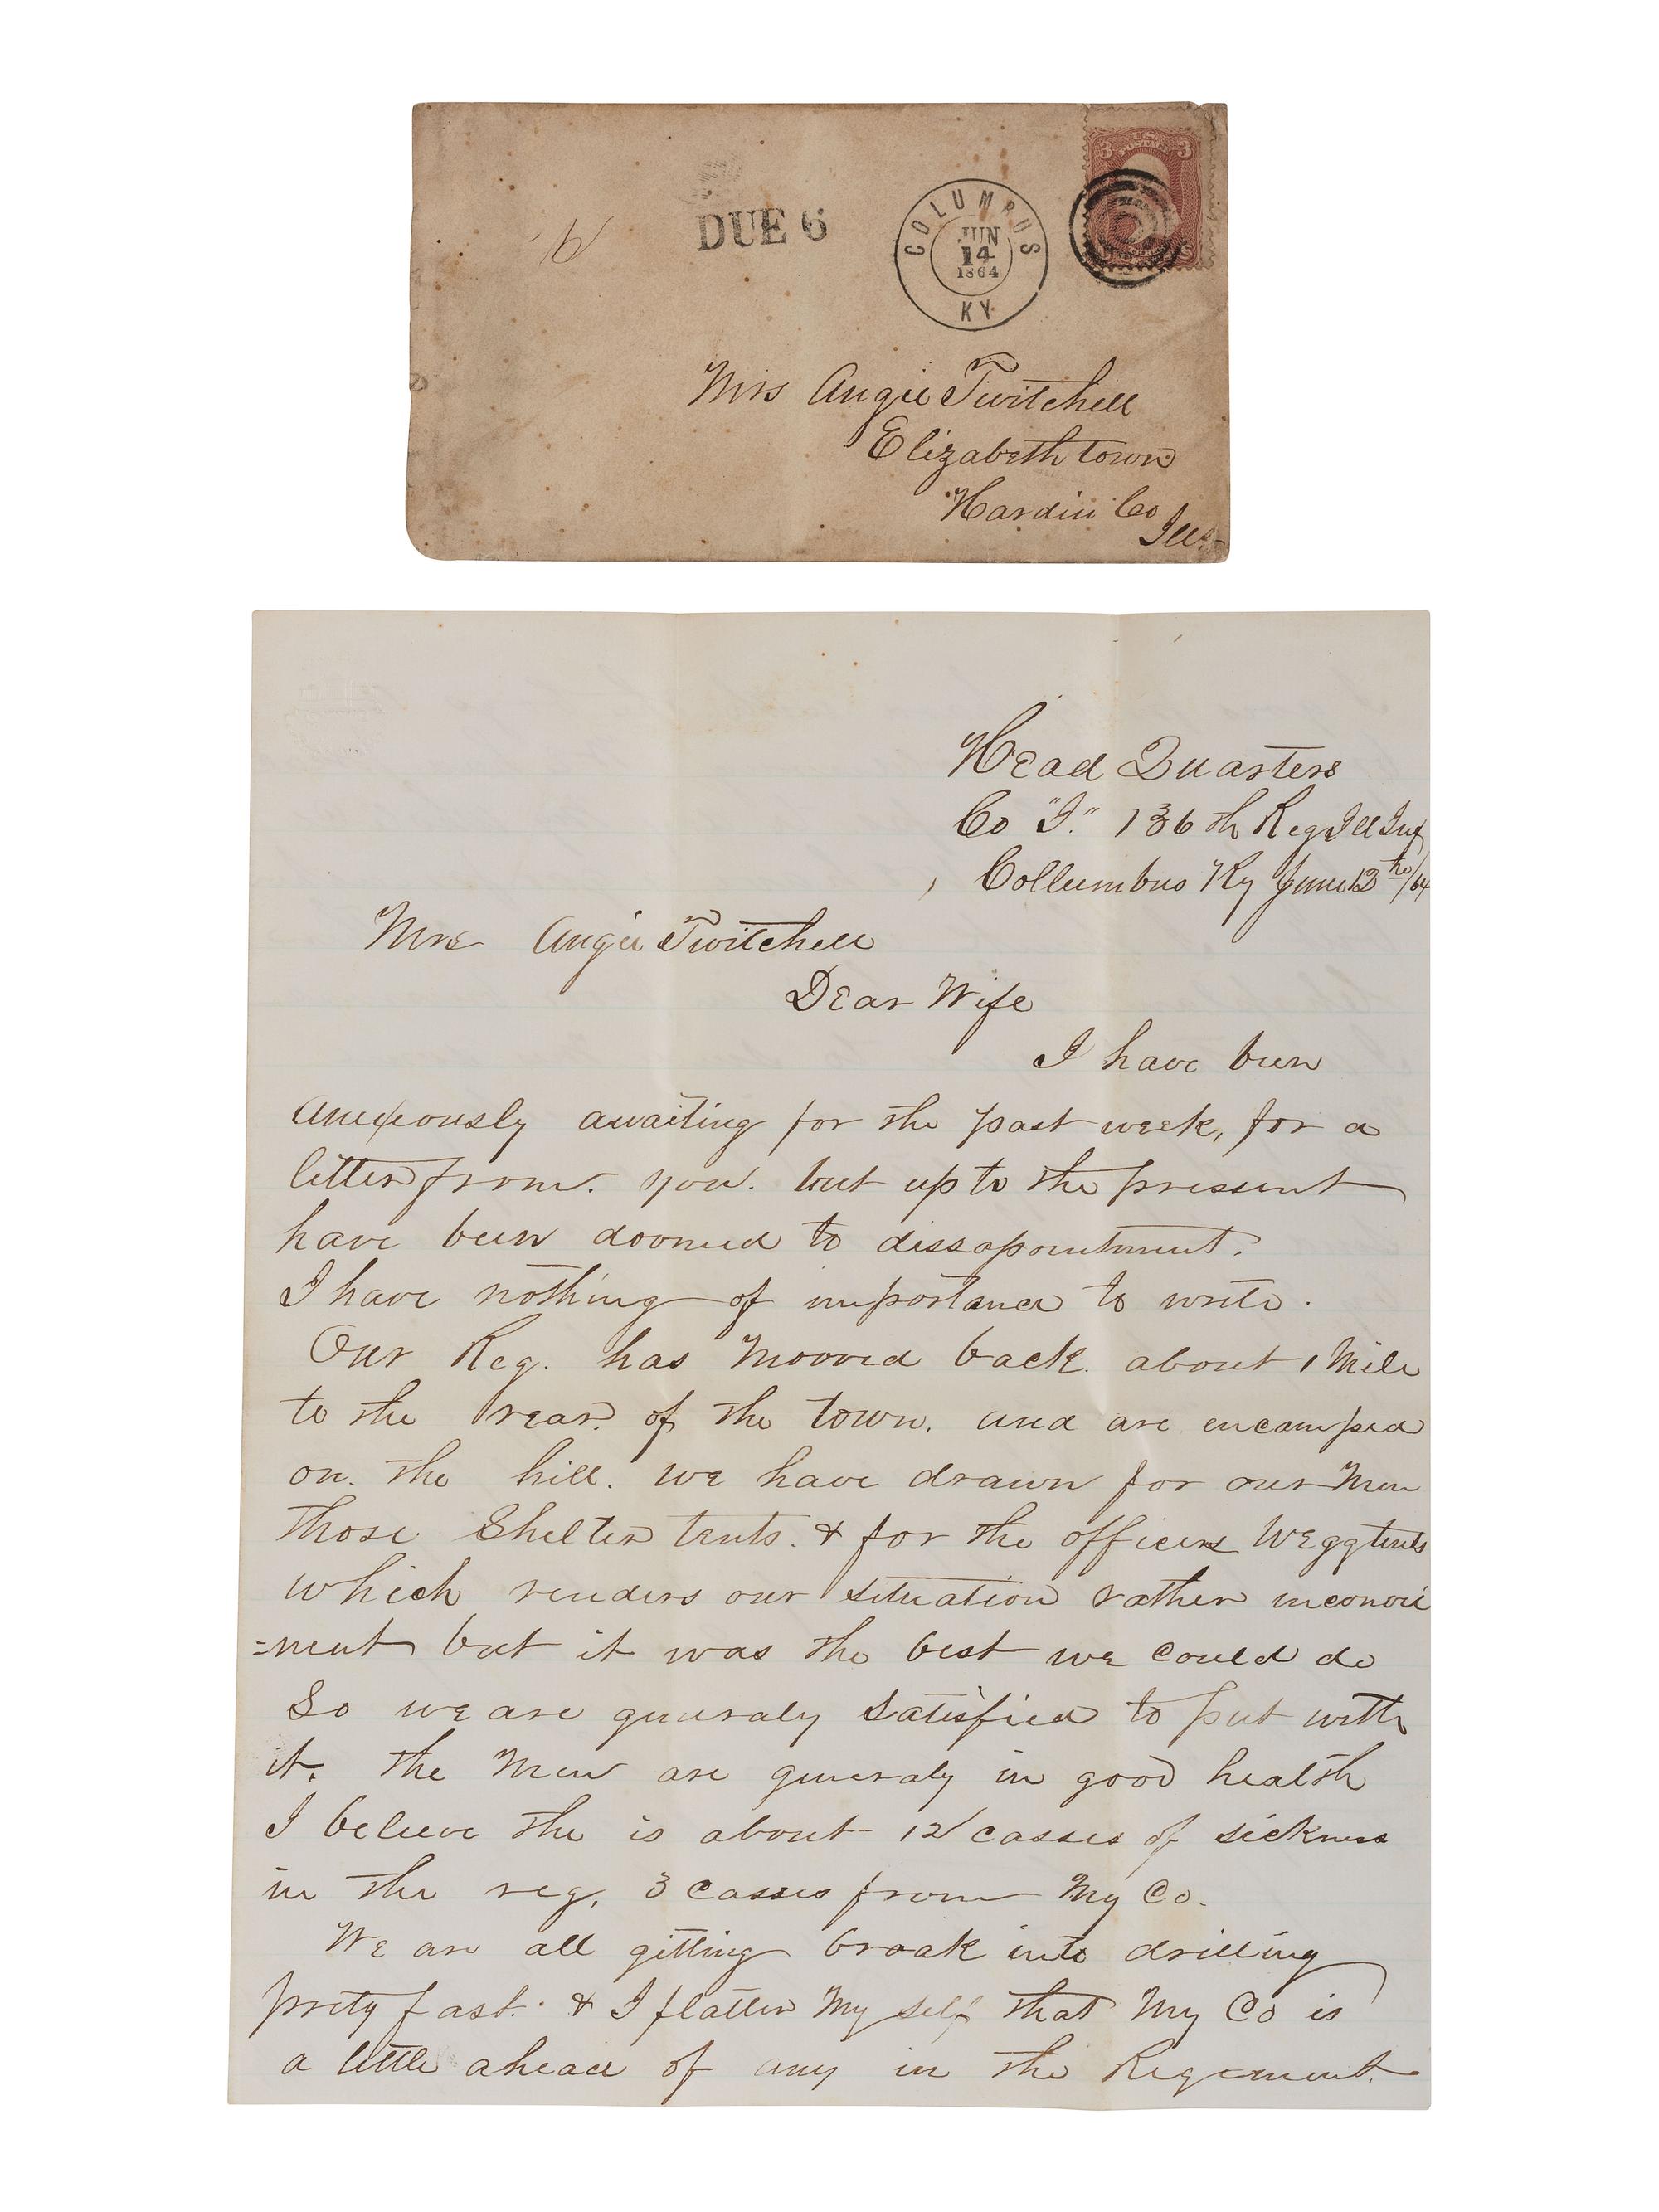 3 U.S. POSTAGE 3
DUE 6
COLUMBUS
JUN
14
1864
KY.
Mrs Angie Twitchell
Elizabethtown
Hardin Co
Ills
Head Quarters
Co "I." 136th Reg Ill Inf
Collumbus Ky June 12th/64
Mrs Angie Twitchell
Dear Wife
I have been
anxeously awaiting for the past week, for a
letter from. you. but up to the pressent
have been doomed to dissapointment.
I have nothing of importance to write.
Our Reg. has mooved back about 1 Mile
to the rear of the town. and are encamped
on. the hill. we have drawn for our Men
those Shelter tents. & for the officers Wegg tents
which renders our situation rather inconvei
=nent but it was the best we could do
So we are generaly satisfied to put with
it. the Men are generaly in good health
I believe the is about 12 casses of sickness
in the reg. 3 casses from My Co.
We are all gitting broak into drilling
prety fast. & I flatter My self that My Co is
a little ahead of any in the Regement.